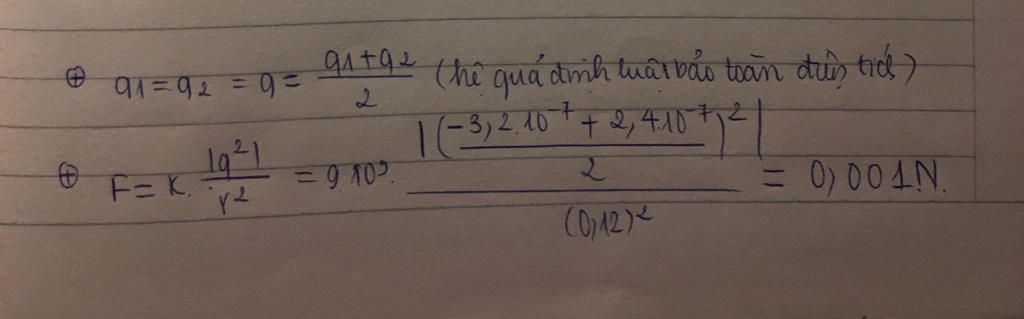 ⊕ q1 = q2 = q = (q1+q2)/2 (hệ quả định luật bảo toàn điện tích)
⊕ F = K. |q²|/r² = 9.10⁹. |((-3,2.10⁻⁷ + 2,4.10⁻⁷)/2)²|/(0,12)² = 0,001N.